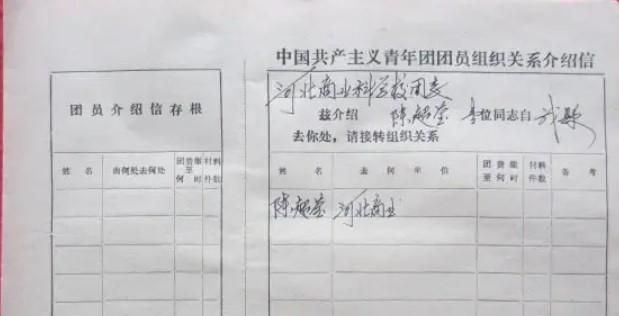 团员介绍信存根
姓名 由何处去何处 团费缴至何时 材料件数
中国共产主义青年团团员组织关系介绍信
河北商业科学校团委
兹介绍 陈超莹 壹位同志自 我县
去你处，请接转组织关系
姓名 去何单位 团费缴至何时 材料件数 备考
陈超莹 河北商业